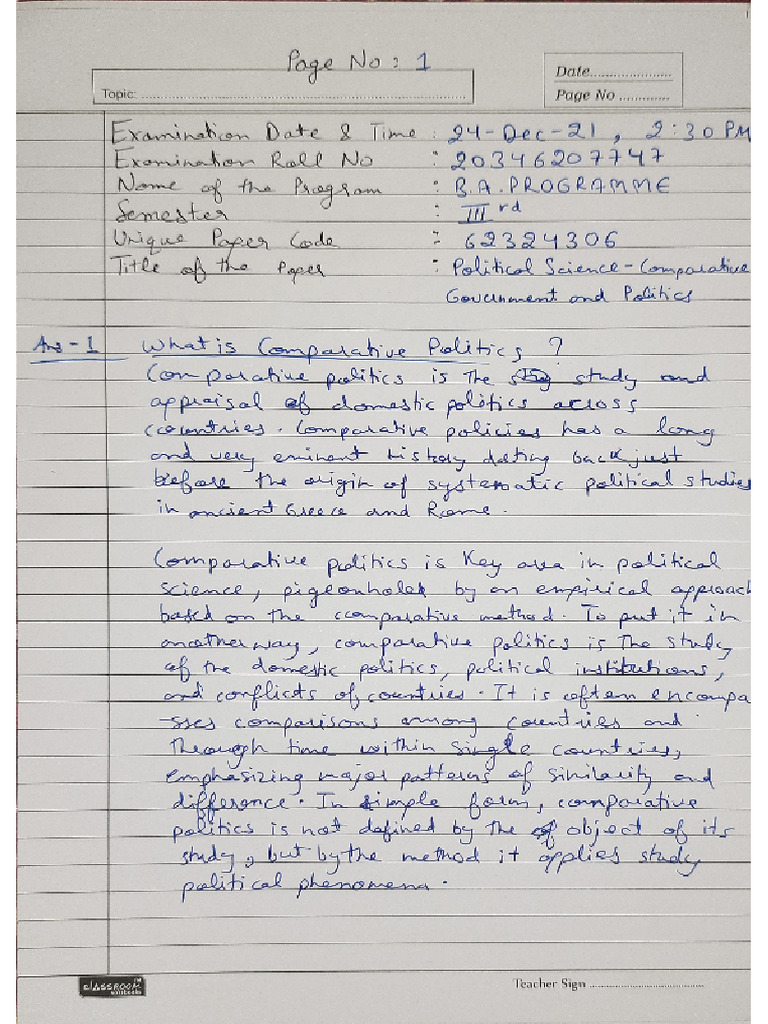 Page No : 1
Date......................
Topic: ................................................................
Page No .............
Examination Date & Time : 24-Dec-21 , 2:30 PM
Examination Roll No : 20346207747
Name of the Program : B.A. PROGRAMME
Semester : III rd
Unique Paper Code : 62324306
Title of the Paper : Political Science - Comparative
Government and Politics
Ans - 1 What is Comparative Politics ?
Comparative politics is the study and
appraisal of domestic politics across
countries. Comparative policies has a long
and very eminent history dating back just
before the origin of systematic political studies
in ancient Greece and Rome.
Comparative politics is Key area in political
science, pigeonholed by an empirical approach
based on the comparative method. To put it in
another way, comparative politics is the study
of the domestic politics, political institutions,
and conflicts of countries. It is often encompa
-sses comparisons among countries and
through time within single countries,
emphasizing major patterns of similarity and
difference. In simple form, comparative
politics is not defined by the object of its
study, but by the method it applies study
political phenomena.
CLASSROOM
notebooks
Teacher Sign ..............................